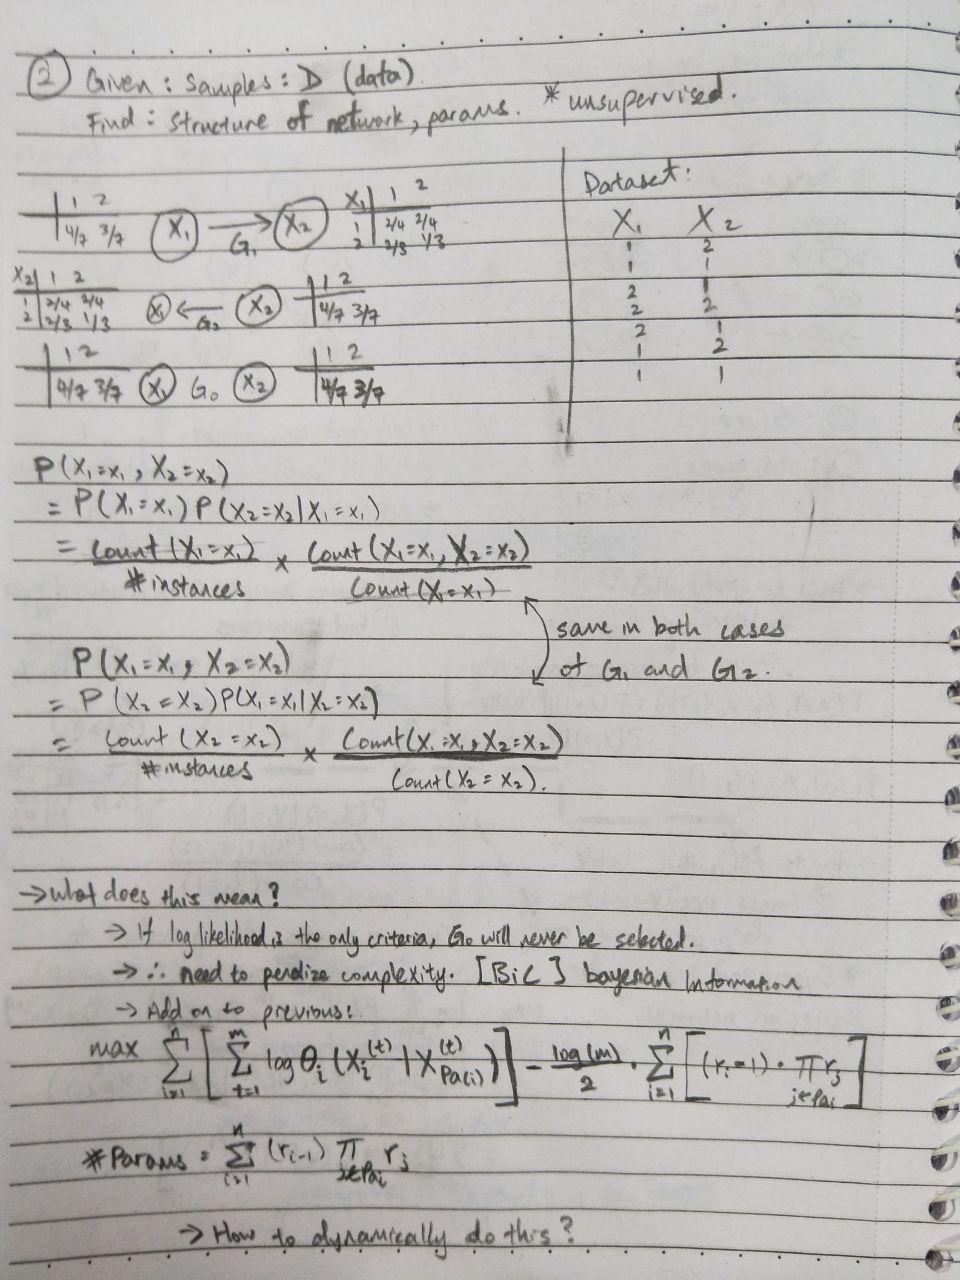 ② Given : Samples : D (data).
Find : Structure of network, params. * unsupervised.
Dataset:
X₁ X₂
1 2
1 1
2 1
2 2
2 1
1 2
1 1
1 2
4/7 3/7
X₁ → X₂
G₁
X₁ 1 2
1 2/4 2/4
2 2/3 1/3
X₂ 1 2
1 2/4 2/4
2 2/3 1/3
X₁ ← X₂
G₂
1 2
4/7 3/7
1 2
4/7 3/7
X₁ G₀ X₂
1 2
4/7 3/7
P(X₁=x₁, X₂=x₂)
= P(X₁=x₁) P(X₂=x₂|X₁=x₁)
= Count(X₁=x₁) / #instances × Count(X₁=x₁, X₂=x₂) / Count(X₁=x₁)
same in both cases
of G₁ and G₂.
P(X₁=x₁, X₂=x₂)
= P(X₂=x₂)P(X₁=x₁|X₂=x₂)
= Count(X₂=x₂) / #instances × Count(X₁=x₁, X₂=x₂) / Count(X₂=x₂).
→ What does this mean?
→ If log likelihood is the only criteria, G₀ will never be selected.
→ ∴ need to penalize complexity. [BiC] bayesian Information
→ Add on to previous:
max Σᵢ₌₁ⁿ [Σₜ₌₁ᵐ log θᵢ (xᵢ⁽ᵗ⁾ | X_Pa(i)⁽ᵗ⁾)] - log(m)/2 · Σᵢ₌₁ⁿ [(rᵢ-1) · Π_{j∈Paᵢ} rⱼ]
#Params = Σᵢ₌₁ⁿ (rᵢ-1) Π_{j∈Paᵢ} rⱼ
→ How to dynamically do this?